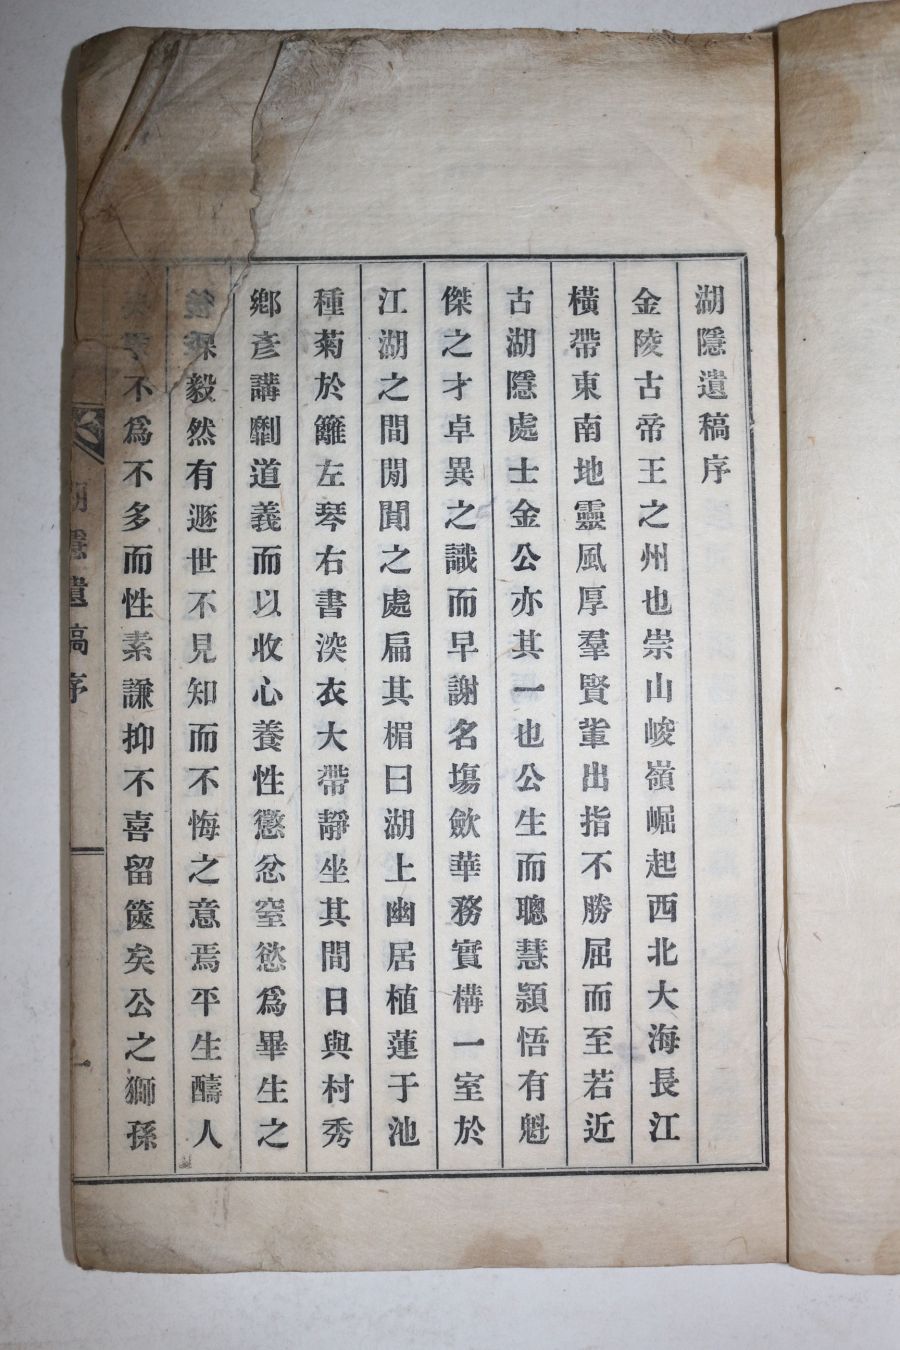 湖隱遺稿序
金陵古帝王之州也崇山峻嶺崛起西北大海長江
橫帶東南地靈風厚羣賢輩出指不勝屈而至若近
古湖隱處士金公亦其一也公生而聰慧頴悟有魁
傑之才卓異之識而早謝名塲歛華務實構一室於
江湖之間閒閴之處扁其楣曰湖上幽居植蓮于池
種菊於籬左琴右書深衣大帶靜坐其間日與村秀
鄕彥講劘道義而以收心養性懲忿窒慾爲畢生之
課毅然有遯世不見知而不悔之意焉平生醻人
不爲不多而性素謙抑不喜留篋矣公之獅孫
湖隱遺稿序
一